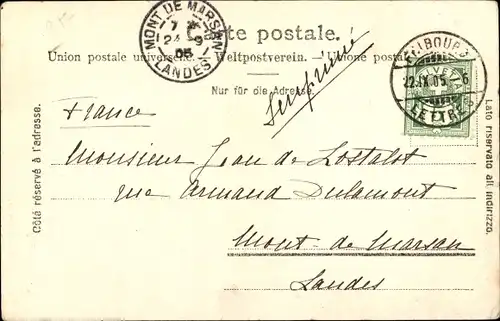 Carte postale.
Union postale universelle. — Weltpostverein. — Unione postale
Nur für die Adresse.
MONT DE MARSAN
7
24 9
05
LANDES
FRIBOURG
22.IX.05. 6
LETTR.
HELVETIA
France
Côté réservé à l'adresse.
Lato riservato all' indirizzo.
Monsieur Jean de Lostalot
rue Armand Dulamont
Mont-de-Marsan
Landes